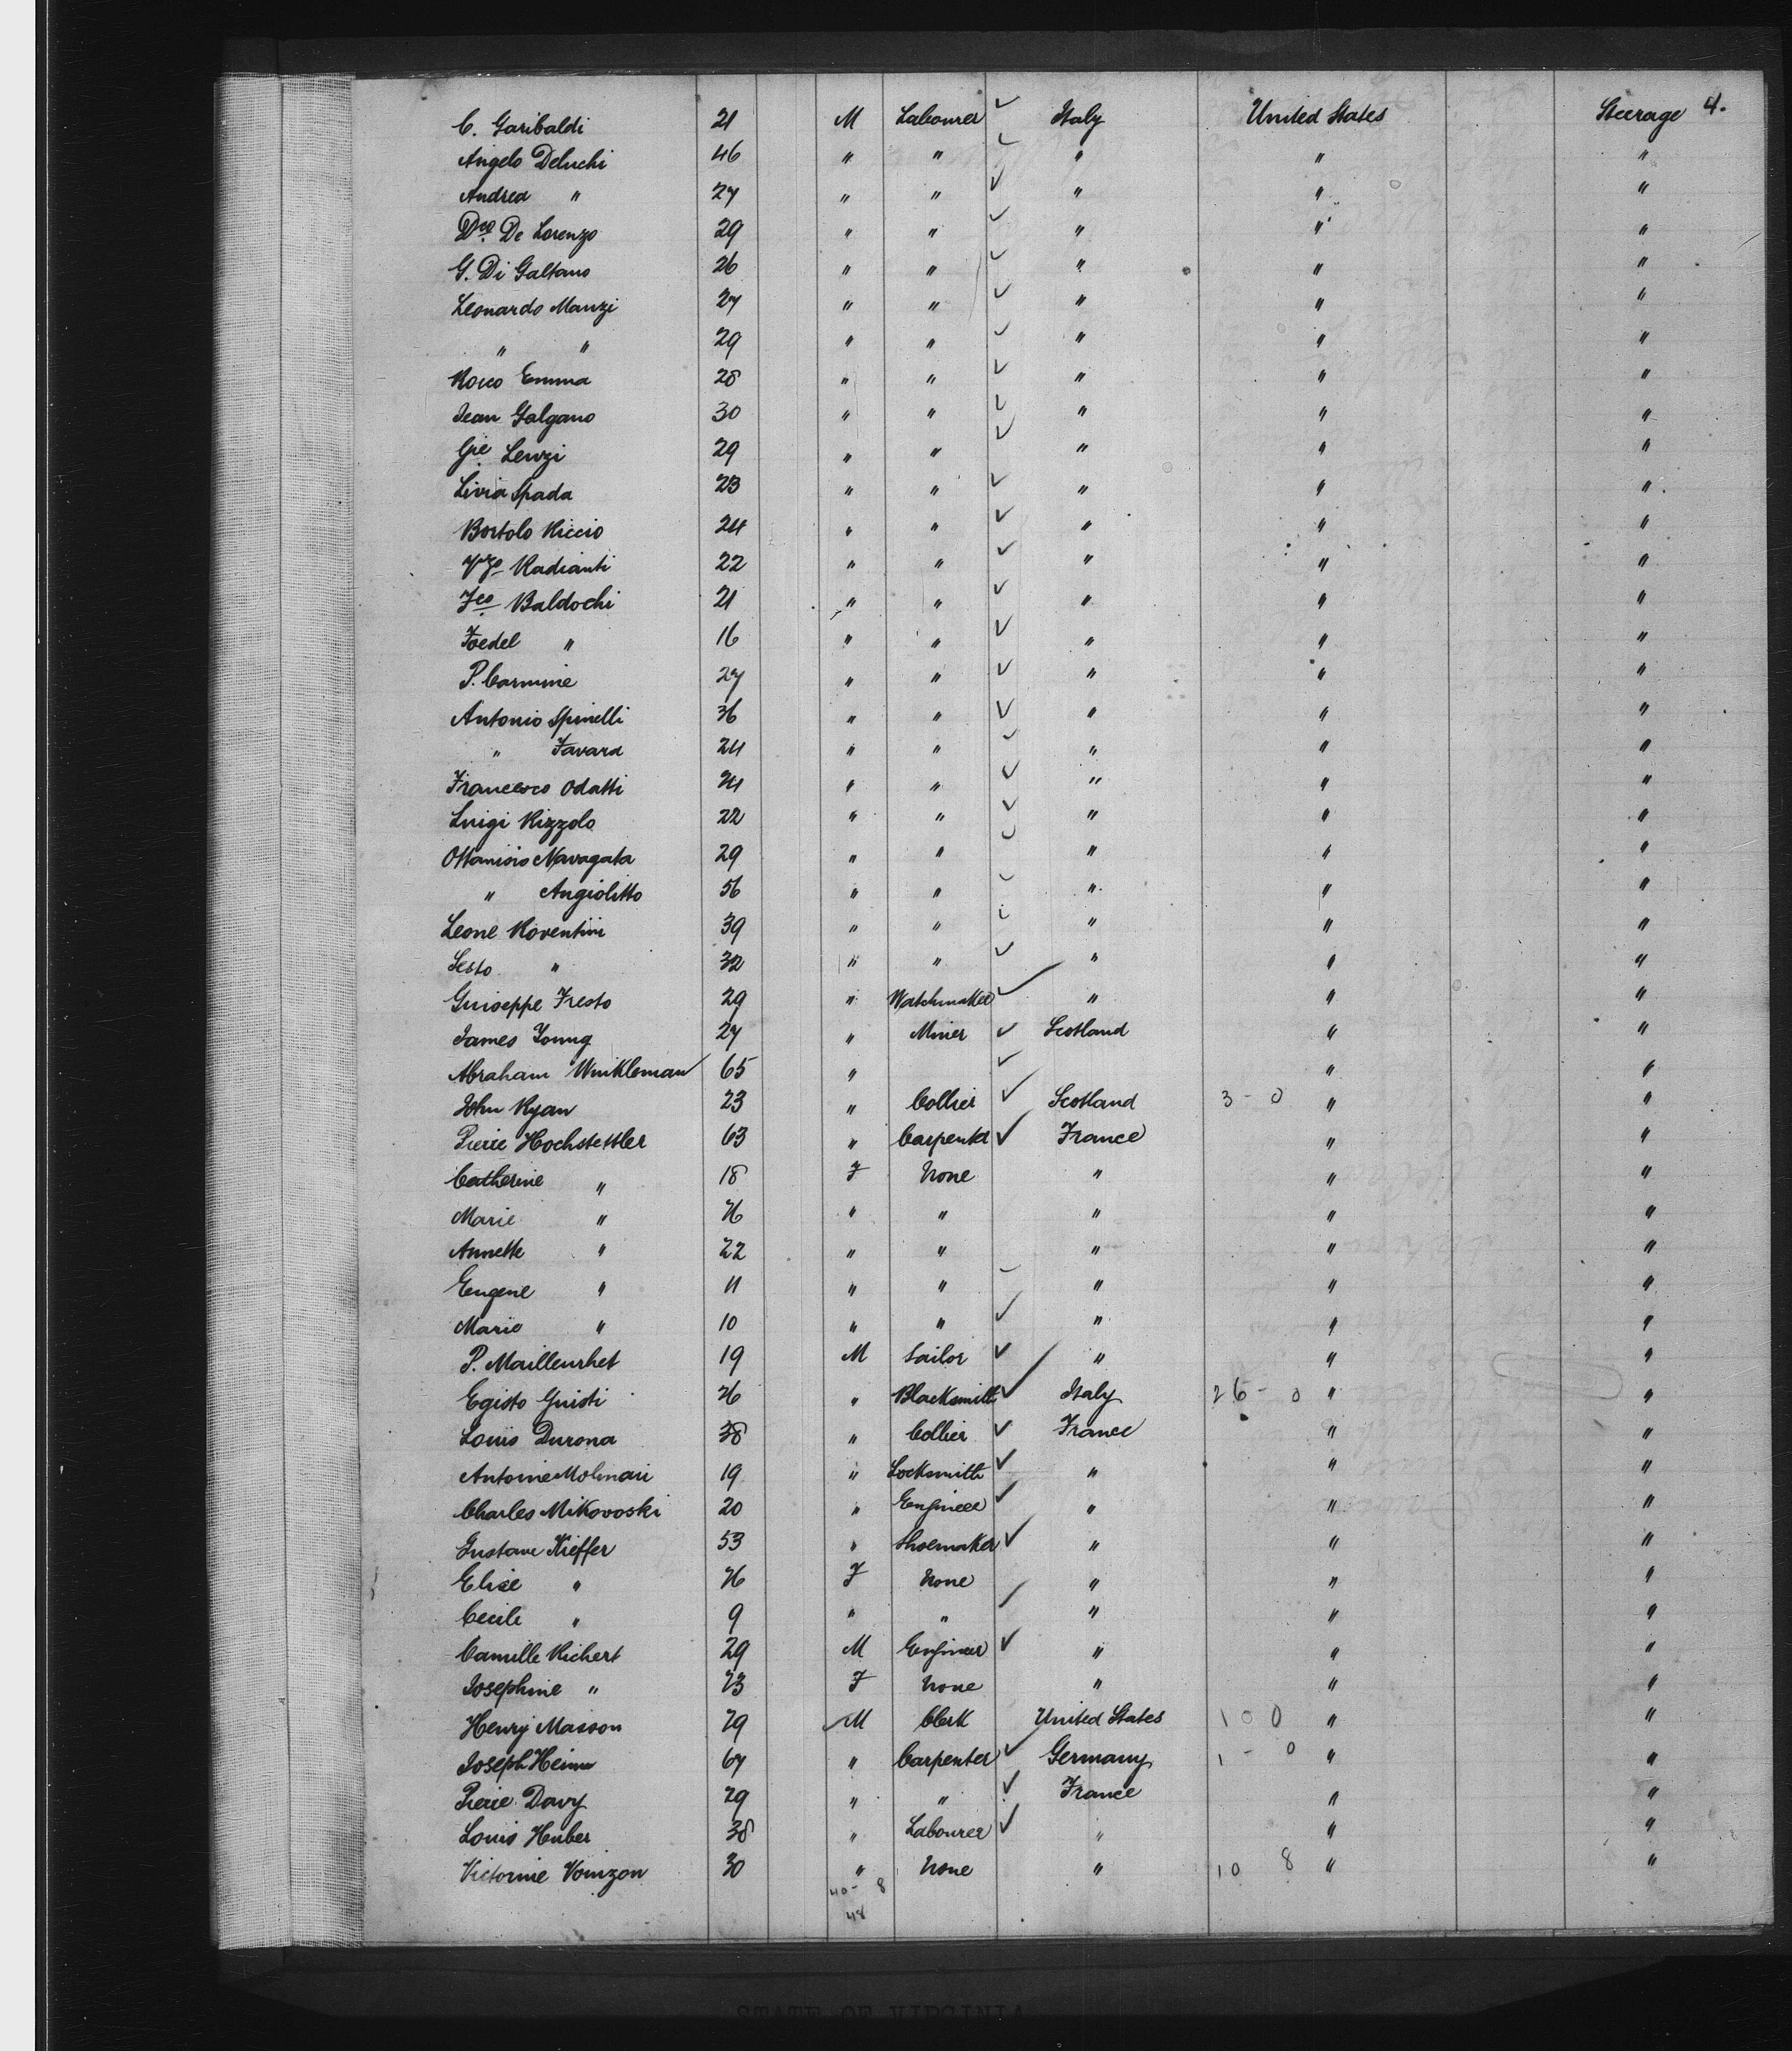 4.
C. Garibaldi 21 M Labourer ✓ Italy United States Steerage
Angelo Deluchi 46 " " ✓ " " "
Andrea " 27 " " ✓ " " "
Dco De Lorenzo 29 " " ✓ " " "
G. Di Galtano 26 " " ✓ " " "
Leonardo Manzi 27 " " ✓ " " "
" " 29 " " ✓ " " "
Rocco Emma 28 " " ✓ " " "
Jean Galgano 30 " " ✓ " " "
Gie Lenzi 29 " " ✓ " " "
Livia Spada 23 " " ✓ " " "
Bortolo Riccio 24 " " ✓ " " "
Vzo Radianti 22 " " ✓ " " "
Fco Baldochi 21 " " ✓ " " "
Foedel " 16 " " ✓ " " "
P. Carmine 27 " " ✓ " " "
Antonio Spinelli 36 " " ✓ " " "
" Favara 24 " " ✓ " " "
Francesco Odatti 21 " " ✓ " " "
Luigi Rizzolo 22 " " ✓ " " "
Navagata 29 " " ✓ " " "
" Angiolitto 56 " " ✓ " " "
Leone Roventini 39 " " ✓ " " "
Sesto " 32 " " ✓ " " "
Guiseppe Fresto 29 " Watchmaker ✓ " " "
James Young 27 " Miner ✓ Scotland " "
Abraham Winkleman 65 " ✓ " "
John Ryan 23 " Collier ✓ Scotland 3 - 0 " "
Pierre Hochstettler 63 " Carpenter ✓ France " "
Catherine " 18 F None " " "
Marie " 26 " " " " "
Annette " 22 " " " " "
Eugene " 11 " " ✓ " " "
Marie " 10 " " ✓ " " "
P. Mailleurhet 19 M Sailor ✓ " " "
Egisto Guisti 26 " Blacksmith ✓ Italy 26 - 0 " "
Louis Durona 38 " Collier ✓ France " "
Antoine Molinari 19 " Locksmith ✓ " " "
Charles Mikovoski 20 " Engineer ✓ " " "
Gustave Kieffer 53 " Shoemaker ✓ " " "
Elise " 26 F None " " "
Cecile " 9 " " ✓ " " "
Camille Richert 29 M Engineer ✓ " " "
Josephine " 23 F None " " "
Henry Masson 29 ✓ M Clerk United States 1 0 0 " "
Joseph Heim 67 " Carpenter ✓ Germany 1 - 0 " "
Pierre Davy 29 " " ✓ France " "
Louis Huber 38 " Labourer ✓ " " "
Victorine Voinzon 30 " None " 10 8 " "
40 - 8
48
STATE OF VIRGINIA